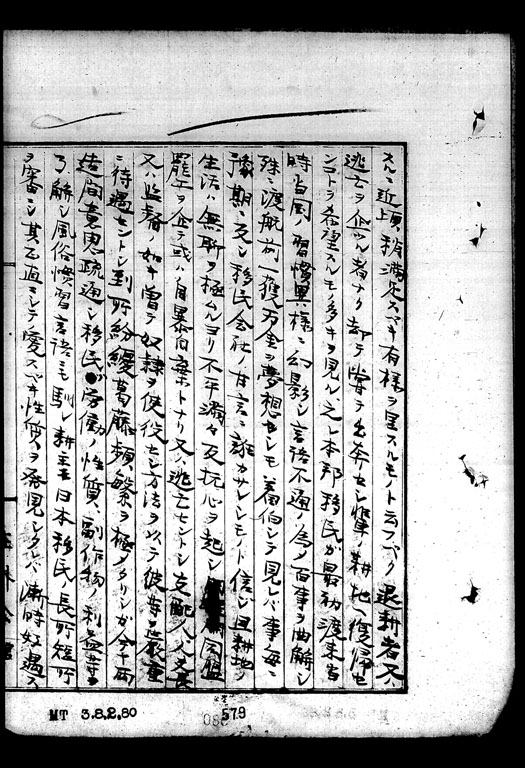 スルニ近頃稍満足スベキ有様ヲ呈スルモノト云フベク退耕者又ハ
逃亡ヲ企ツル者ナク却テ嘗テ出奔セシ輩ノ耕地ヘ復帰セ
ンコトヲ希望スルモノ多キヲ見ル之レ本邦移民ガ最初渡来当
時当国ノ習慣異様ニ幻影シ言語不通ノ為メ百事ヲ曲解シ
殊ニ渡航前一獲万金ヲ夢想セシモ着伯シテ見レバ事毎ニ
予期ニ反シ移民会社ノ甘言ニ誑カサレシモノト信シ且耕地ノ
生活ハ無聊ヲ極ムルヨリ不平満々反抗心ヲ起シ同盟
罷工ヲ企テ或ハ自暴自棄トナリ又ハ逃亡セントシ支配人
又ハ監督ノ如キ嘗テ奴隷ヲ使役セシ方法ヲ以テ彼等ヲ厳重
ニ待遇セントシ到所紛纓葛藤頻繁ヲ極メタリシガ今ヤ両
者間意思疏通シ移民ガ労働ノ性質、副作物ノ利益等ヲ
了解シ風俗慣習言語ニモ馴レ耕主モ日本移民ノ長所短所
ヲ審ニシ其正直ニシテ愛スベキ性質ヲ発見シタレバ漸時好遇ス
MT 3.8.2.80
579